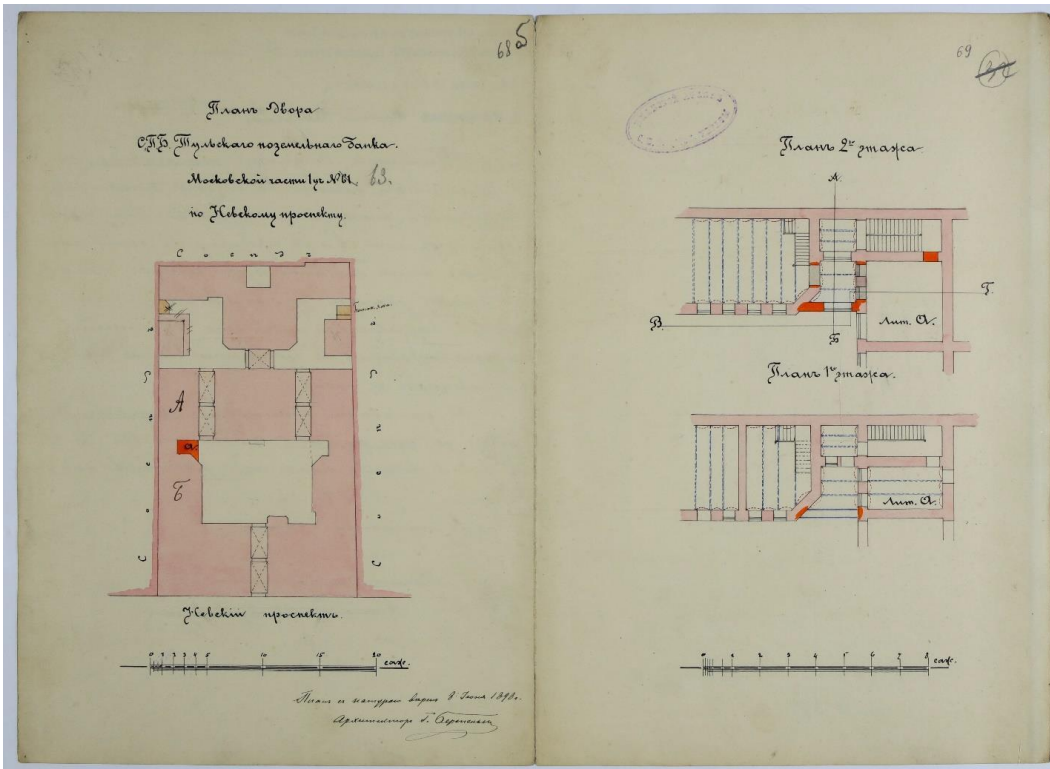 68 б
Планъ двора
С.П.Б. Тульскаго поземельнаго банка.
Московской части 1 уч. № 61. 63.
по Невскому проспекту.
Сосѣдъ
Сосѣдъ
Сосѣдъ
А
а.
Б
Невскій проспектъ.
0 1 2 3 4 5 10 15 20 саж.
Планъ съ натурою вѣренъ 8 Іюня 1898 г.
Архитекторъ
69
Планъ 2го этажа
А.
В.
Г.
Б
Лит. А.
Планъ 1го этажа.
Лит. А.
0 1 2 3 4 5 6 7 8 саж.